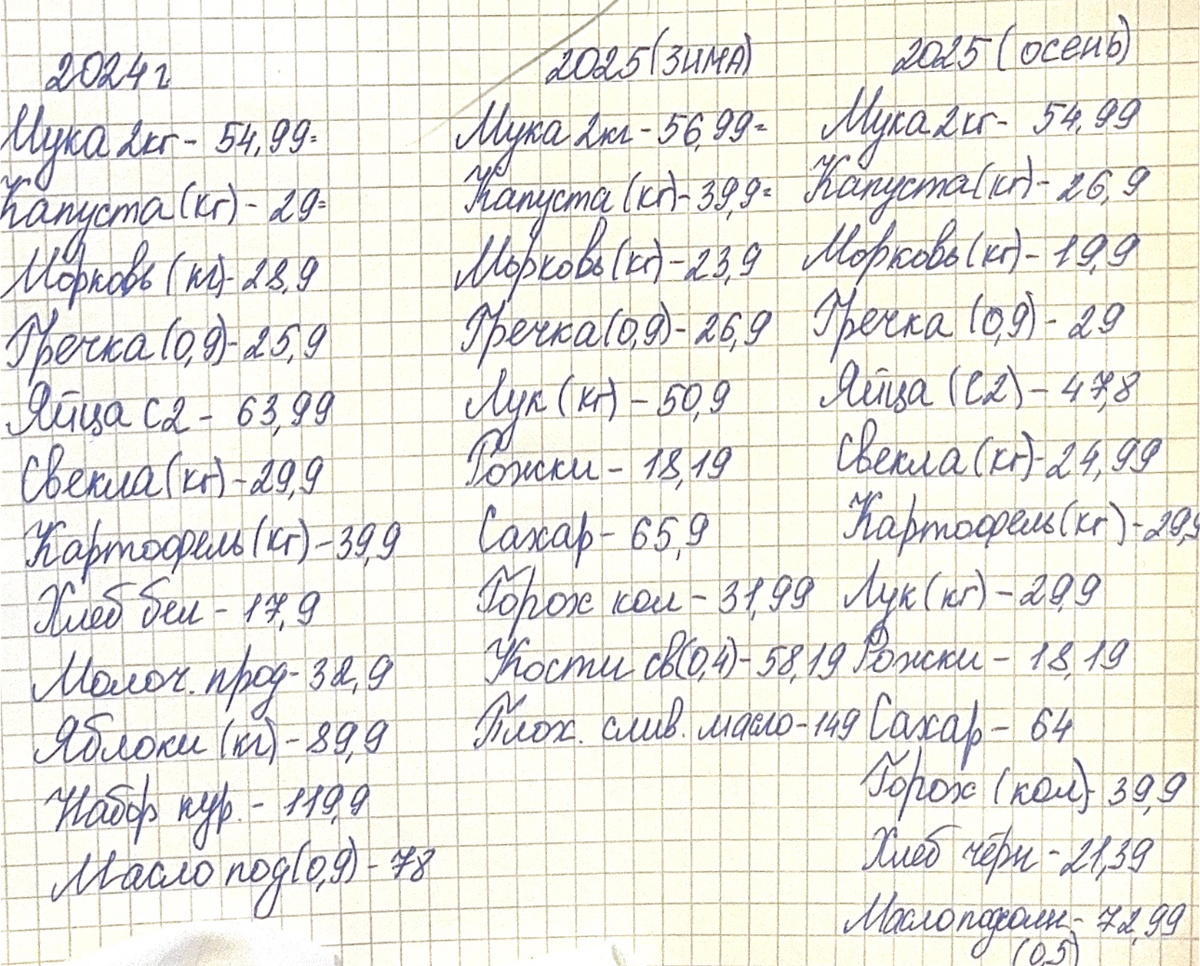 2024г
Мука 2кг - 54,99=
Капуста (кг) - 29=
Морковь (кг) - 28,9
Гречка (0,9) - 25,9
Яйца С2 - 63,99
Свекла (кг) - 29,9
Картофель (кг) - 39,9
Хлеб бел - 17,9
Молоч. прод - 32,9
Яблоки (кг) - 89,9
Набор кур. - 119,9
Масло под (0,9) - 78
2025 (ЗИМА)
Мука 2кг - 56,99=
Капуста (кг) - 39,9=
Морковь (кг) - 23,9
Гречка (0,9) - 26,9
Лук (кг) - 50,9
Рожки - 18,19
Сахар - 65,9
Горох кол - 31,99
Кости св (0,4) - 58,19
Плох. слив. масло - 149
2025 (ОСЕНЬ)
Мука 2кг - 54,99
Капуста (кг) - 26,9
Морковь (кг) - 19,9
Гречка (0,9) - 29
Яйца (С2) - 47,8
Свекла (кг) - 24,99
Картофель (кг) - 29,9
Лук (кг) - 29,9
Рожки - 18,19
Сахар - 64
Горох (кол) - 39,9
Хлеб чёрн - 21,39
Масло подсолн - 72,99
(0,5)